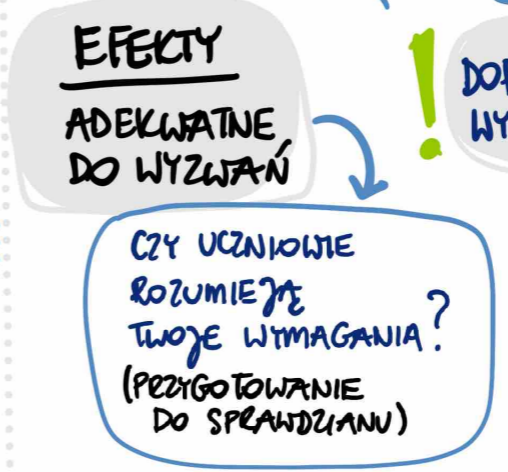 EFEKTY
ADEKWATNE
DO WYZWAŃ
!
CZY UCZNIOWIE
ROZUMIEJĄ
TWOJE WYMAGANIA?
(PRZYGOTOWANIE
DO SPRAWDZIANU)